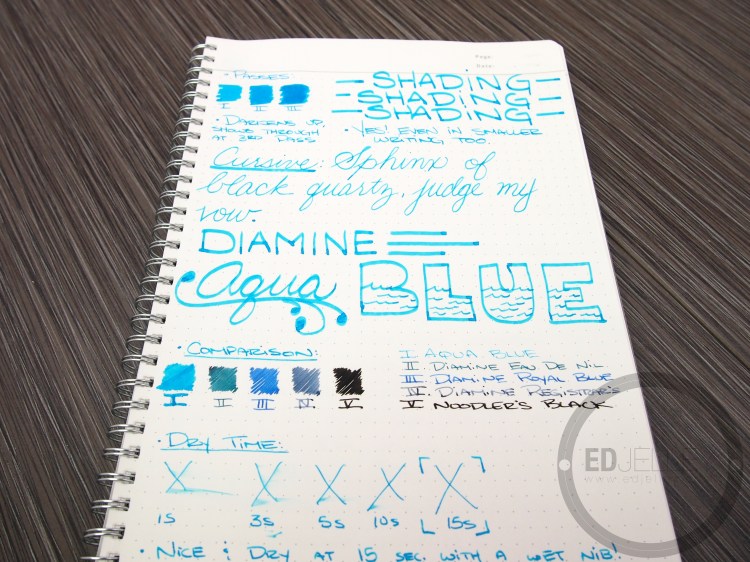 Page:
Date:
• Passes:
I II III
• Darkens up,
shows through
at 3rd pass
– SHADING –
– SHADING –
– SHADING –
• Yes! Even in smaller
writing too.
Cursive: Sphinx of
black quartz, judge my
vow.
DIAMINE
Aqua BLUE
• Comparison:
I II III IV V
I Aqua Blue
II. Diamine Eau De Nil
III. Diamine Royal Blue
IV. Diamine Registrars
V Noodler's Black
• Dry Time:
X X X X X
1s 3s 5s 10s 15s
• Nice & Dry at 15 sec. with a wet nib!